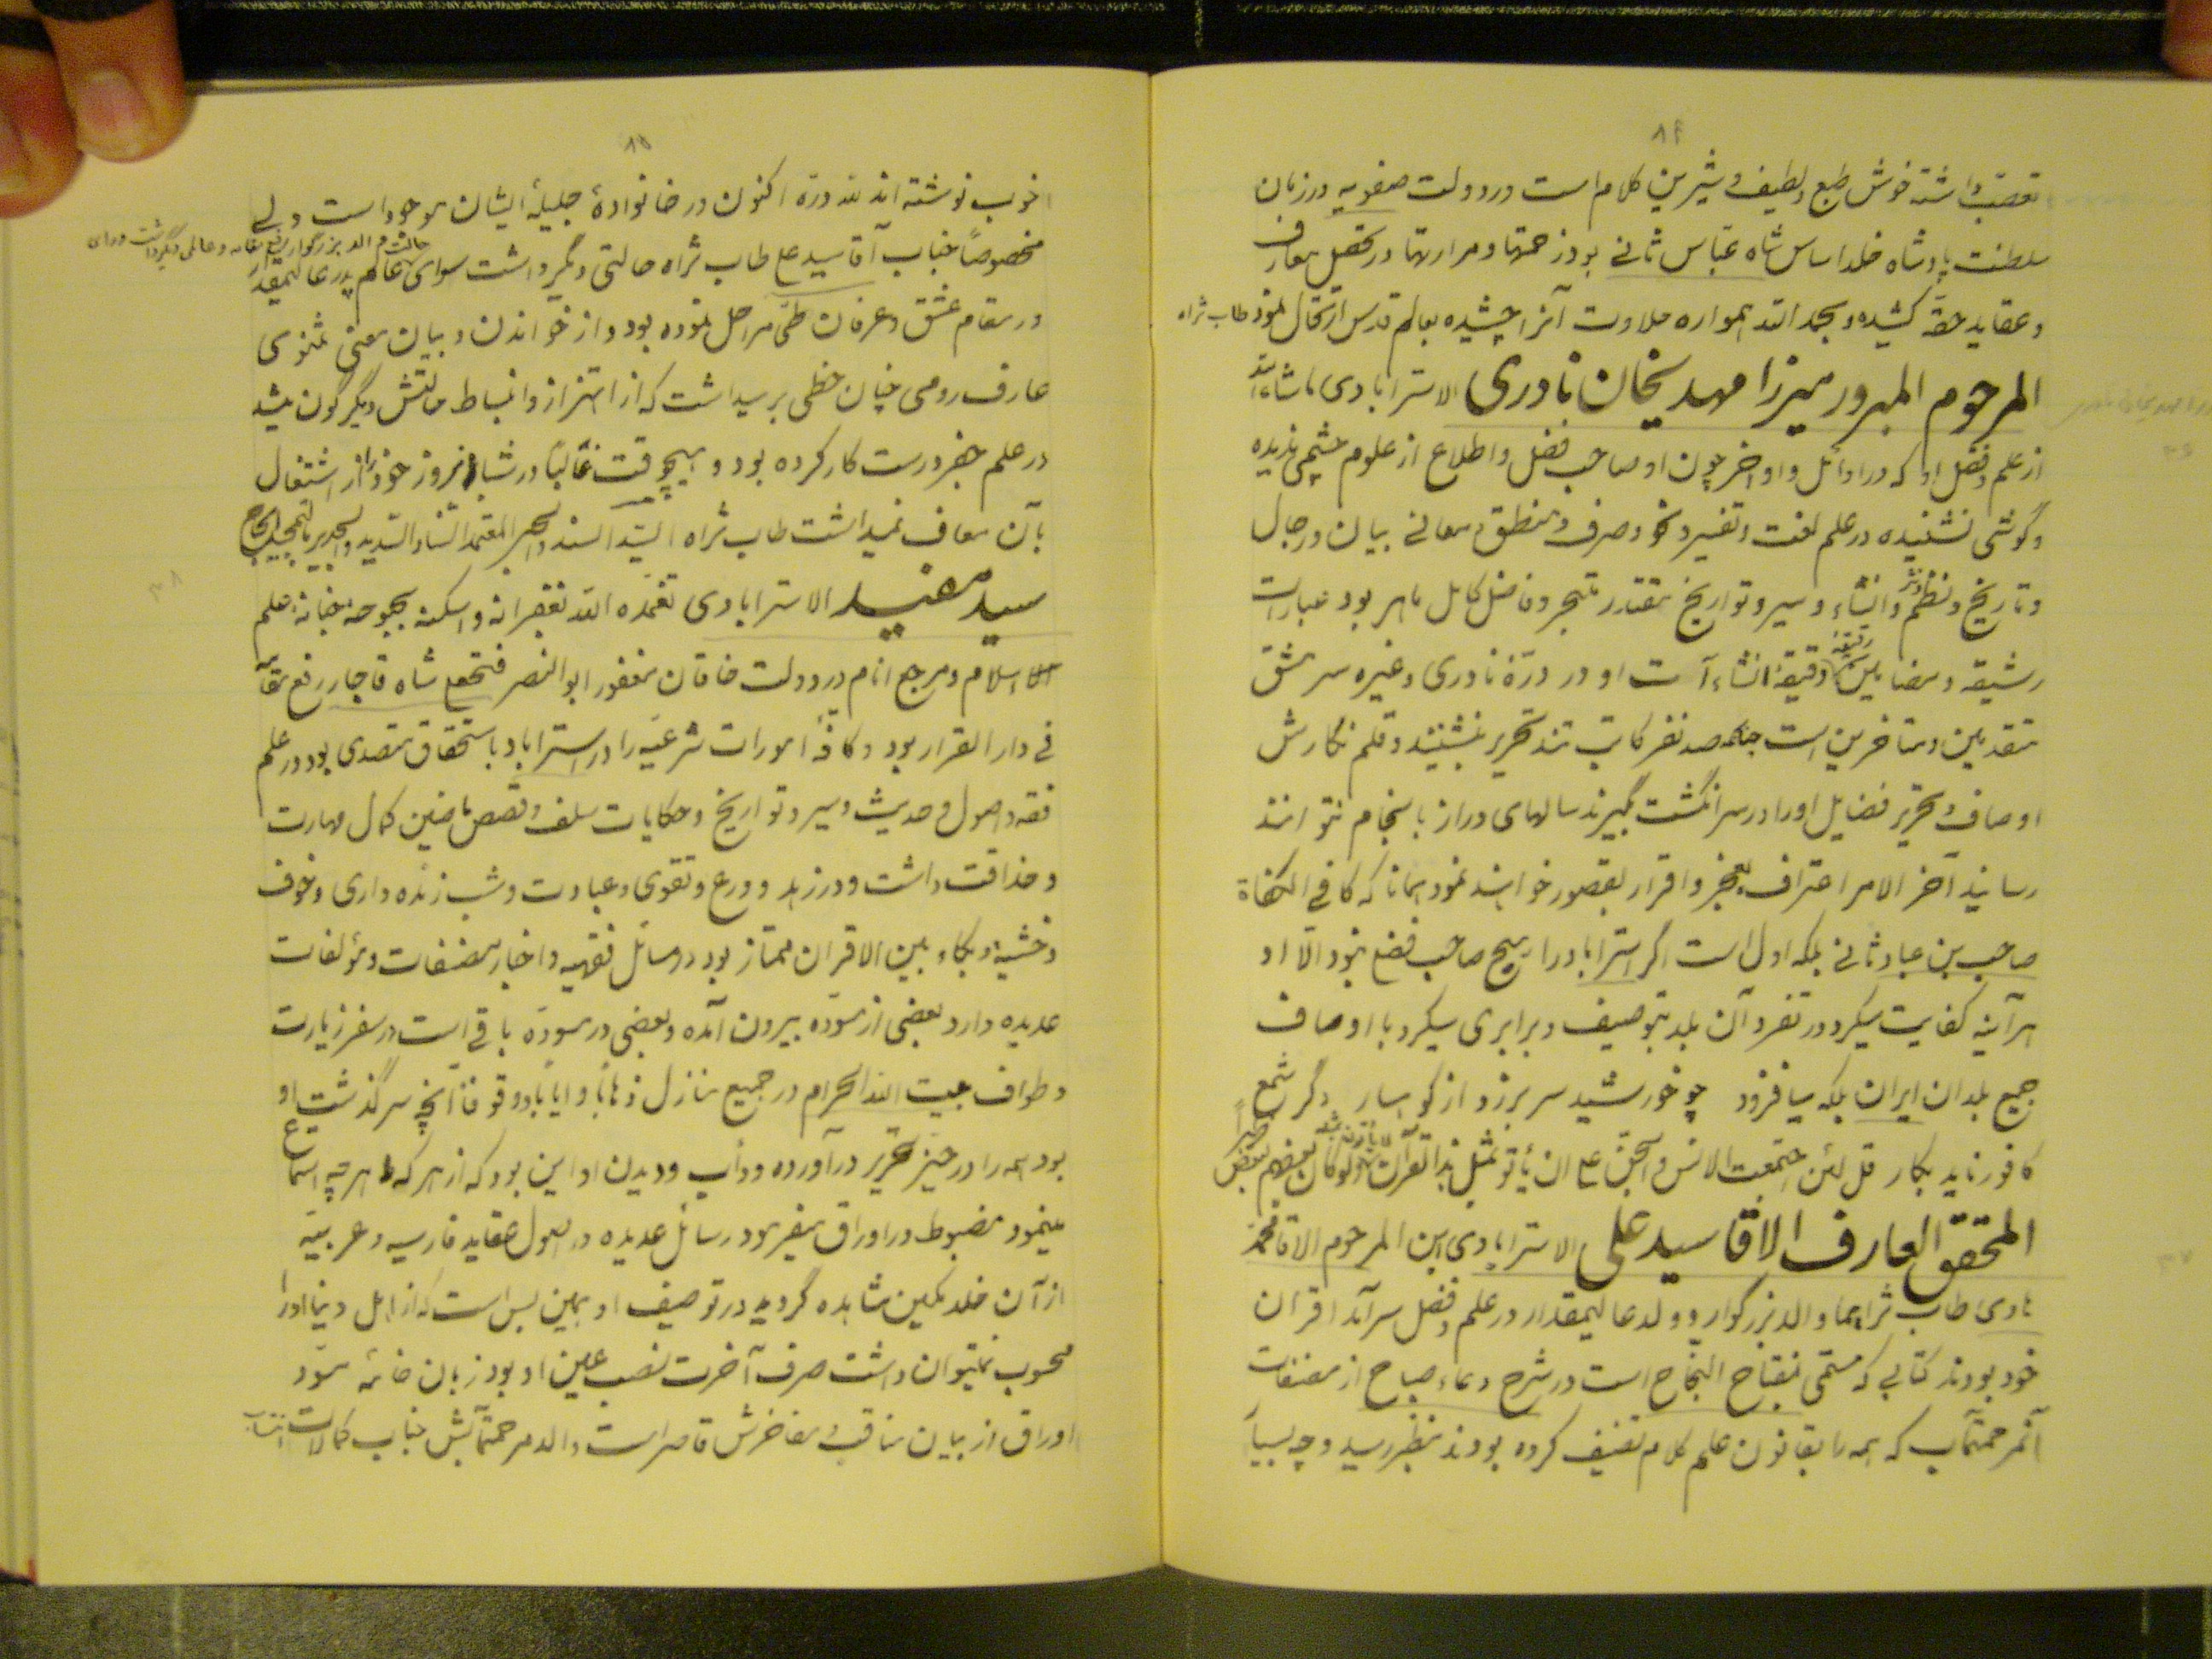 ۸۴
تعصّب داشته خوش طبع و لطیف و شیرین کلام است در دولت صفویه در زمان
سلطنت پادشاه خلد اساس شاه عباس ثانی بود زحمتها و مرارتها در تحصیل معارف
و عقاید حقه کشیده و بحمد الله همواره حلاوت آنرا چشیده بعالم قدس ارتحال نمود طاب ثراه
المرحوم المبرور میرزا مهدیخان نادری الاسترابادی ماشاءالله
از علم و فضل او که در اوائل و اواخر چون او صاحب فضل و اطلاع از علوم چشمی ندیده
و گوشی نشنیده در علم لغت و تفسیر و نحو و صرف و منطق و معانی بیان و رجال
و تاریخ و نظم و نثر و انشاء و سیر و تواریخ مقتدر متبحر و فاضل کامل ماهر بود عبارات
رشیقه و مضامین دقیقهٔ انشاءآت او در درّهٔ نادری و غیره سرمشق
متقدمین و متاخرین است چنانکه صد نفر کاتب تند تحریر بنشینند و قلم نگارش
اوصاف و تحریر فضایل او را در سر انگشت بگیرند سالهای دراز بانجام نتوانند
رسانید آخر الامر اعتراف بعجز و اقرار بقصور خواهند نمود همانا که کافی الکفاة
صاحب بن عباد ثانی بلکه اول است اگر استراباد را هیچ صاحب فضلی نبود الّا او
هرآینه کفایت میکرد در تفرد آن بلد بتوصیف و برابری میکرد با اوصاف
جمیع بلدان ایران بلکه میافزود چو خورشید سر برزد از کوهسار دگر شمع
کافور ناید بکار قل لئن اجتمعت الانس و الجنّ علی ان یأتو بمثل هذا القرآن لا یأتون بمثله ولو کان بعضهم لبعض ظهیراً
المحقق العارف الاقا سید علی الاسترابادی ابن المرحوم الاقا محمد
هادی طاب ثراهما والد بزرگوار و ولد عالیمقدار در علم و فضل سرآمد اقران
خود بودند کتابی که مسمّی بمفتاح النجاح است در شرح دعاء صباح از مصنفات
آنمرحمتمآب که همه را بقانون علم کلام تصنیف کرده بودند بنظر رسید و چه بسیار
۸۵
خوب نوشته اند لله درّه اکنون در خانوادهٔ جلیلهٔ ایشان موجود است ولی
مخصوصاً جناب آقا سید علی طاب ثراه حالتی دگر داشت سوای عالم پدر عالیمقدار
در مقام عشق و عرفان طیّ مراحل نموده بود و از خواندن و بیان معنی مثنوی
عارف رومی چنان حظی برمیداشت که از اهتزاز و انبساط حالتش دیگرگون میشد
در علم جفر درست کار کرده بود و هیچوقت غالباً در شبانروز خود را از اشتغال
بآن معاف نمیداشت طاب ثراه السیّد السند و الحبر المعتمد
سید مفید الاسترابادی تغمّده الله بغفرانه و اسکنه بحبوحة جنانه علم
الاسلام و مرجع انام در دولت خاقان مغفور ابوالنصر فتحعلی شاه قاجار رفع مقامه
فی دار القرار بود و کافّهٔ امورات شرعیّه را در استراباد باستحقاق متصدی بود در علم
فقه و اصول و حدیث و سیر و تواریخ و حکایات سلف و قصص ماضین کمال مهارت
و حذاقت داشت و در زهد و ورع و تقوی و عبادت و شب زنده داری و خوف
و خشیة و بکاء بین الاقران ممتاز بود در مسائل فقهیه و اخبار مصنفات و مؤلفات
عدیده دارد بعضی از مسودّه بیرون آمده و بعضی در مسودّه باقی است در سفر زیارت
و طواف بیت الله الحرام در جمیع منازل ذهاباً و ایاباً در وقوف آنچه سرگذشت او
بود همه را در حیّز تحریر درآورده و دأب و دیدن او این بود که از هر که هر چه استماع
مینمود مضبوط در اوراق میفرمود رسائل عدیده در اصول عقاید فارسیه و عربیّه
از آن خلد مکین مشاهده گردید در توصیف او همین بس است که از اهل دنیا او را
محسوب نمیتوان داشت صرف آخرت نصب عین او بود زبان خامهٔ مسوّد
اوراق از بیان مناقب و مفاخرش قاصر است والد مرحمتمآبش جناب کمالات انتساب